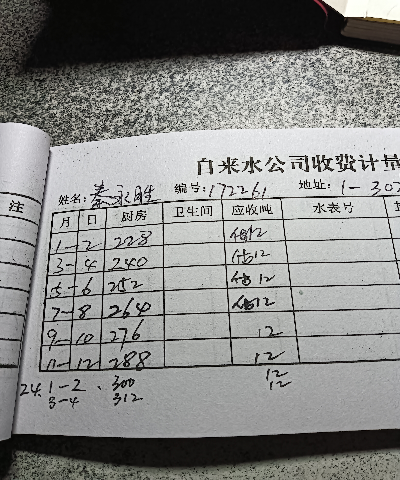 自来水公司收费计量
姓名: 秦永胜 编号: 172261 地址: 1-302
注
月 日 厨房 卫生间 应收吨 水表号
1-2 228 估12
3-4 240 估12
5-6 252 估12
7-8 264 估12
9-10 276 12
11-12 288 12
24. 1-2 300 12
3-4 312 12